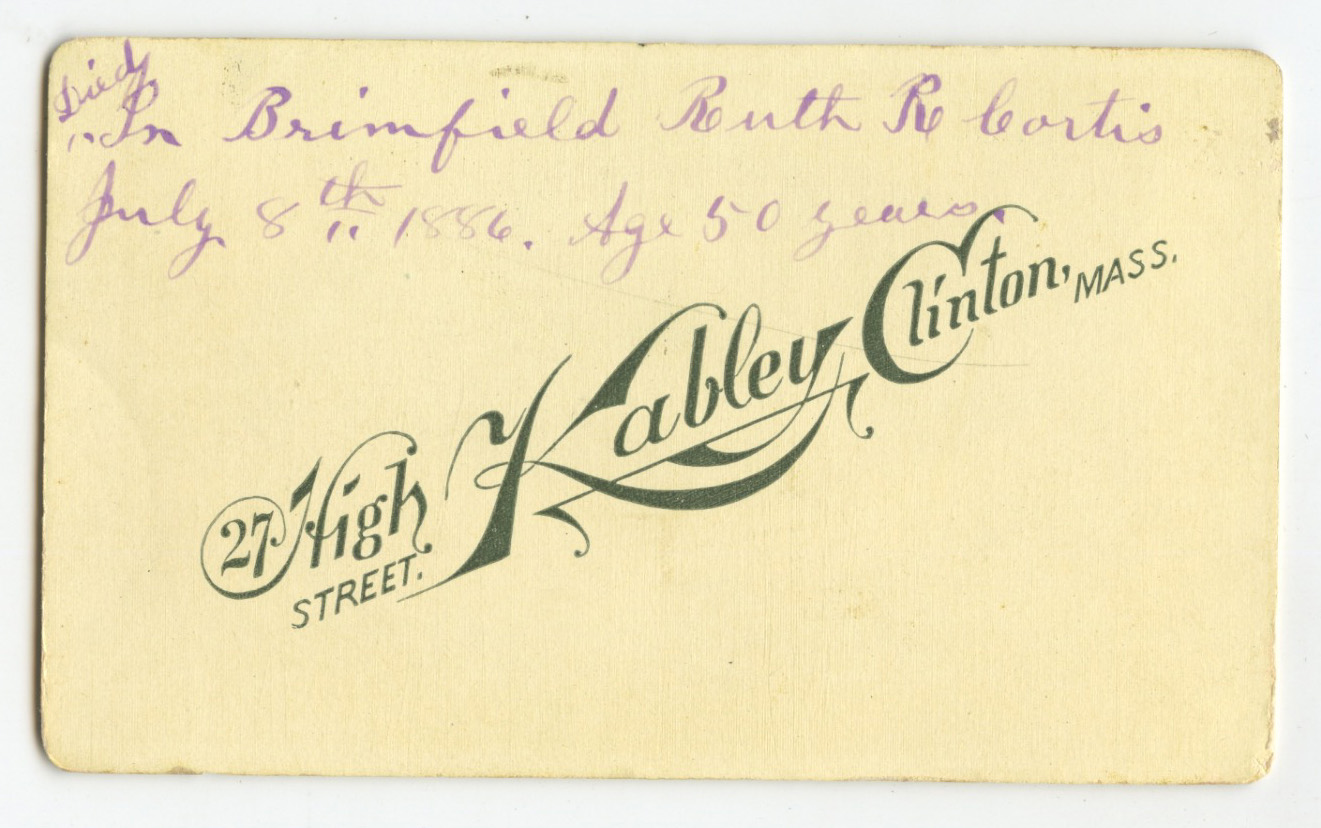 Died
" In Brimfield Ruth R Cortis
July 8th 1886. Age 50 years.
27 High Kabley Clinton, MASS.
STREET.